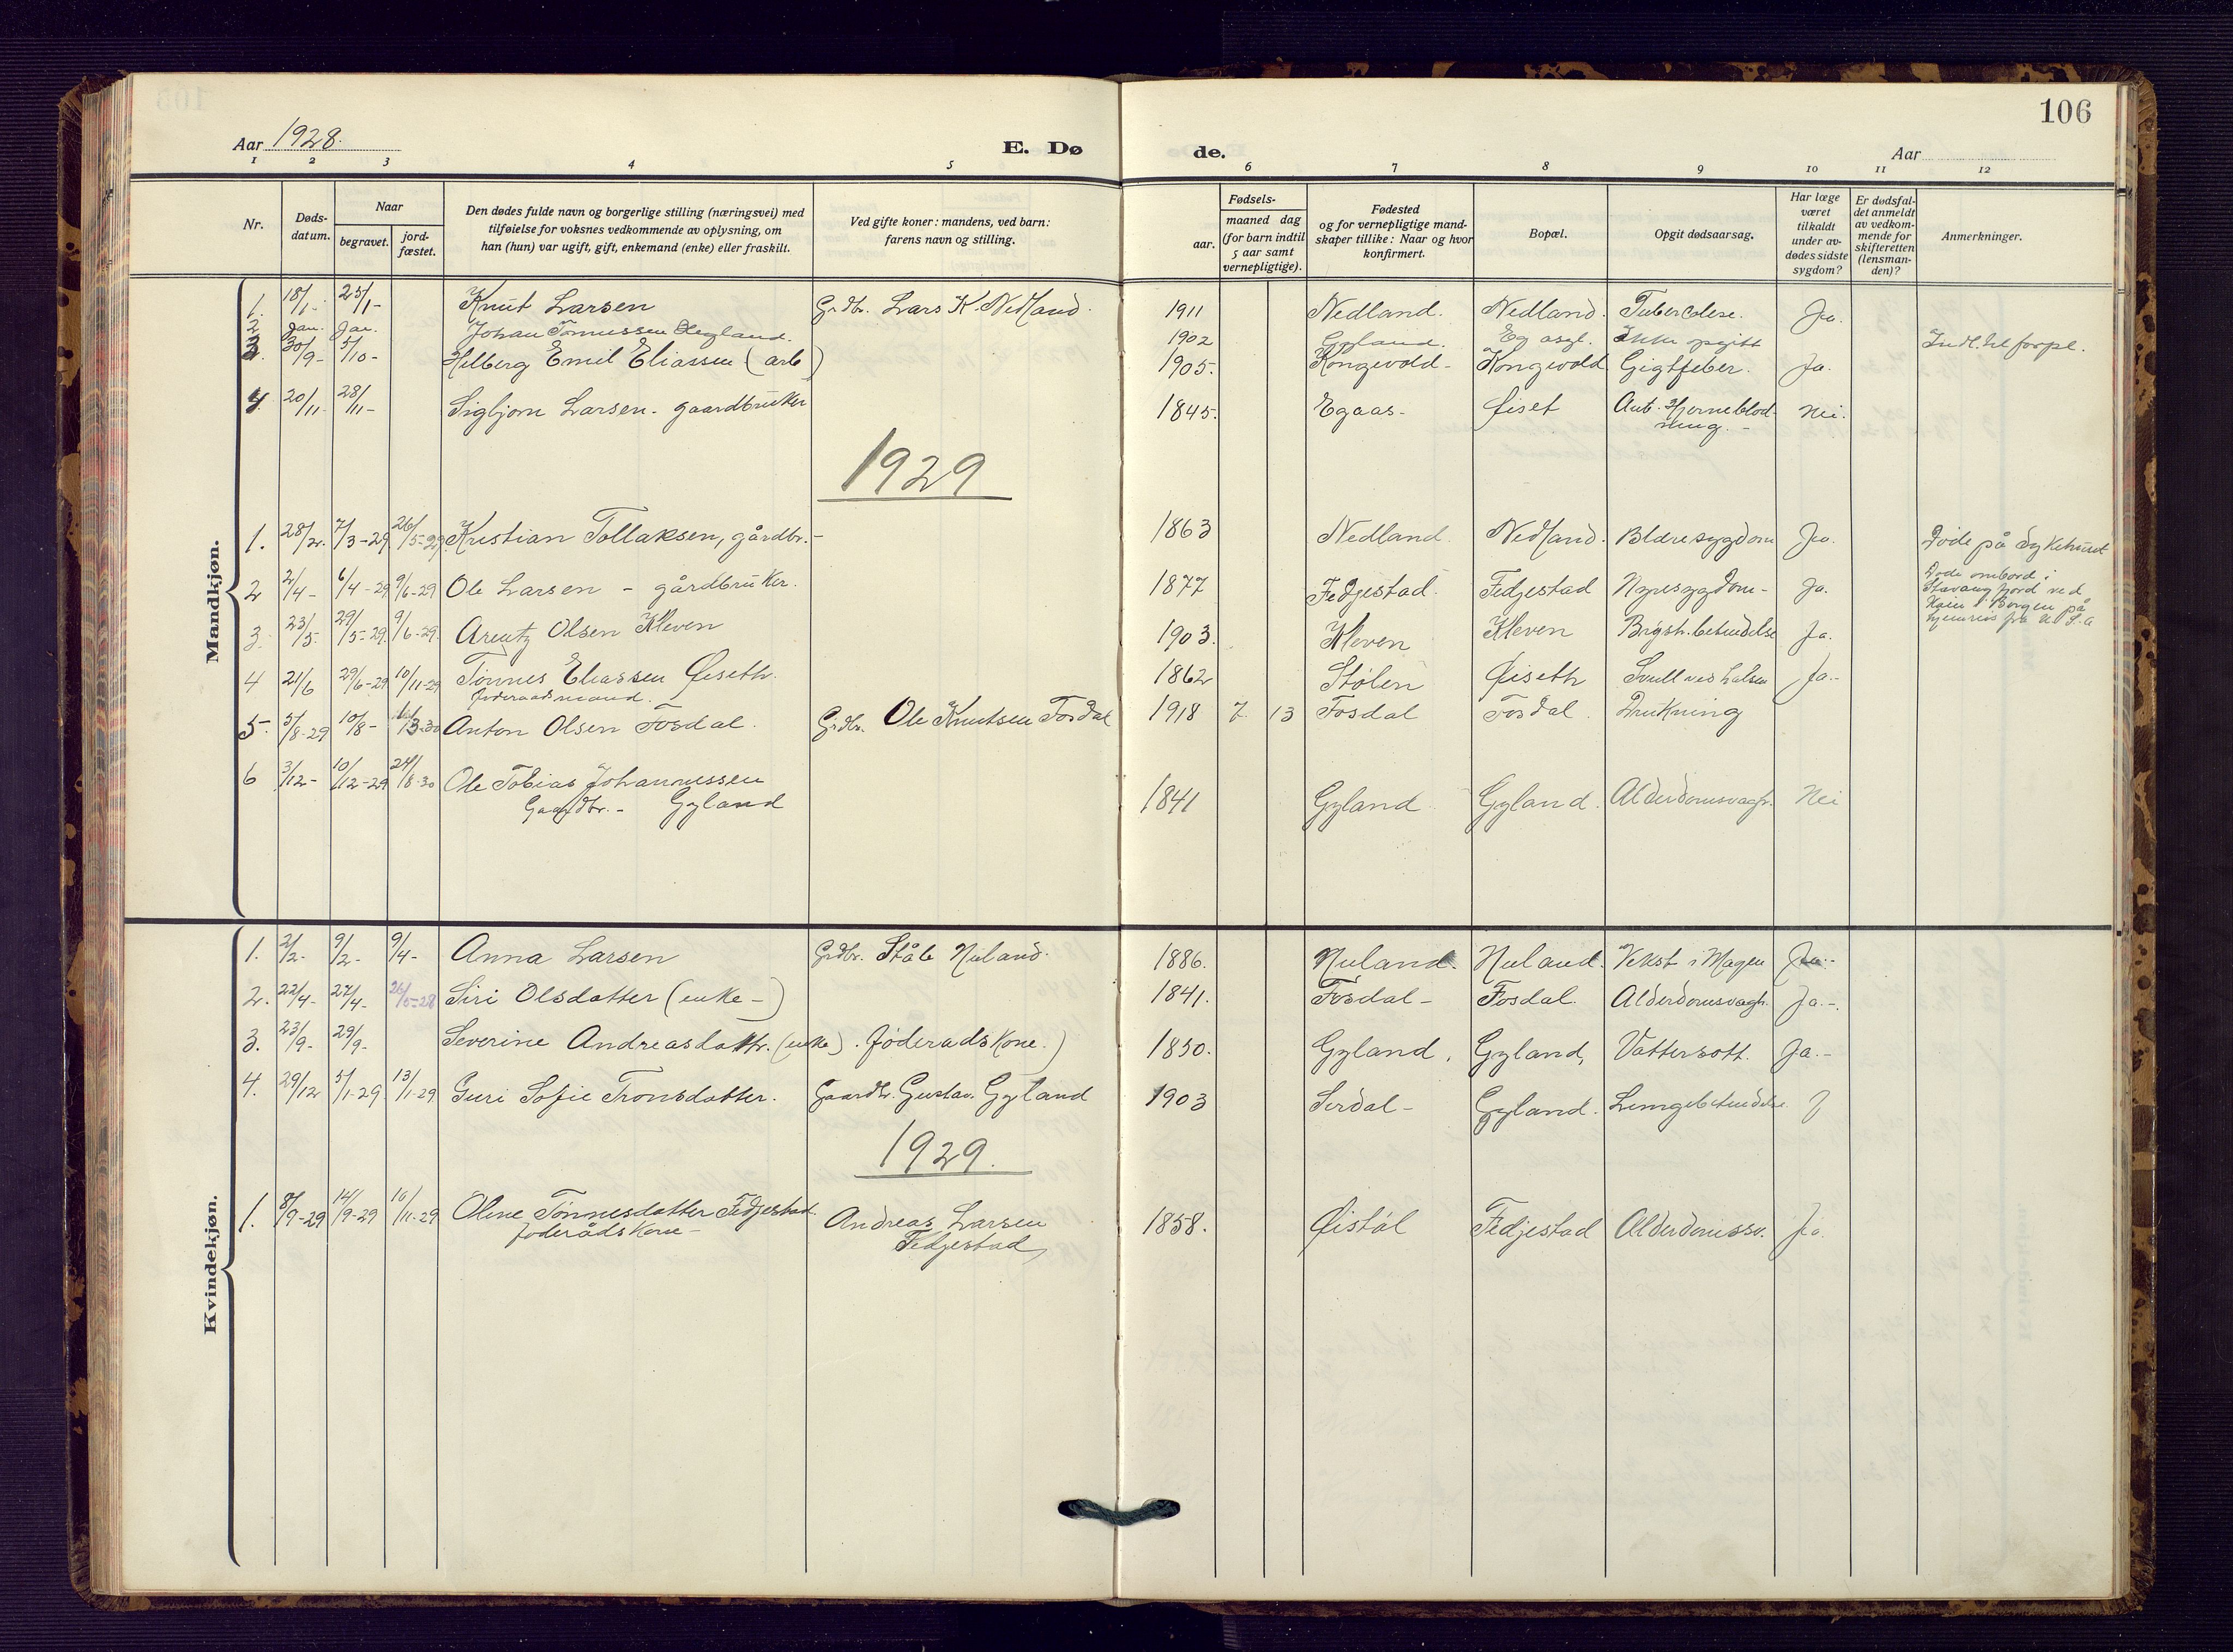 106
Aar 1928.
E. Dø
de.
Aar
1 2 3 4 5 6 7 8 9 10 11 12
Nr.
Døds-
datum.
Naar
begravet.
jord-
fæstet.
Den dødes fulde navn og borgerlige stilling (næringsvei) med
tilføielse for voksnes vedkommende av oplysning, om
han (hun) var ugift, gift, enkemand (enke) eller fraskilt.
Ved gifte koner: mandens, ved barn:
farens navn og stilling.
Fødsels-
aar.
maaned dag
(for barn indtil
5 aar samt
vernepligtige).
Fødested
og for vernepligtige mand-
skaper tillike: Naar og hvor
konfirmert.
Bopæl.
Opgit dødsaarsag.
Har læge
været
tilkaldt
under av-
dødes sidste
sygdom?
Er dødsfal-
det anmeldt
av vedkom-
mende for
skifteretten
(lensman-
den)?
Anmerkninger.
Mandkjøn.
1. 18/1- 25/1- Knut Larsen Grdbr. Lars K. Nedland. 1911 Nedland. Nedland. Tubercolose. Ja.
2 Jan. Jan. Johan Tønnessen Hegland. 1902 Gyland. Eg asyl. Ikke opgitt Indl. til forpl.
3. 30/9- 5/10- Hilberg Emil Eliassen (arb) 1905. Kongevold- Kongevold Gigtfeber. Ja.
4. 20/11. 28/11- Sigbjørn Larsen - gaardbruker 1845. Egaas- Øiset Ant. Hjerneblød-
ning. - Nei.
1929
1. 28/2. 7/3-29 26/5-29 Kristian Tollaksen, gårdbr.- 1863 Nedland. Nedland. Blæresygdom Ja. Døde på sykehuset
2 2/4- 6/4-29 9/6-29 Ole Larsen - gårdbruker. 1877 Fedjestad. Fedjestad Nyresygdom- Ja. Døde ombord i
Stavangfjord ved
Bergen på
hjemreis fra U.S.A
3. 23/5- 29/5-29. 9/6-29. Arentz Olsen Kleven 1903. Kleven Kleven Brystbetendelse Ja.
4 21/6 29/6-29 10/11-29 Tønnes Eliassen Øiseth.
føderaadsmand. 1862 Stølen Øiseth Svull ved halsen Ja.-
5. 5/8-29 10/8- 3-30 Anton Olsen Fosdal. Grdbr. Ole Knutsen Fosdal 1918 7. 13 Fosdal Fosdal. Drukning
6 3/12- 10/12-29 24/8-30 Ole Tobias Johannessen
Gaardbr.- Gyland 1841 Gyland Gyland. Alderdomsvagh. Nei
Kvindekjøn.
1. 2/2- 9/2- 9/4- Anna Larsen Grdbr. Ståle Nuland. 1886. Nuland. Nuland. Vekst i Magen Ja.-
2. 22/4- 27/4- 26/5-28 Siri Olsdatter (enke-) 1841. Fosdal- Fosdal. Alderdomsvagh. Ja.-
3. 23/9- 29/9- Severine Andreasdattr. (enke). føderadskone.) 1850. Gyland, Gyland, Vattersott. Ja.-
4. 29/12 5/1-29 13/1-29 Guri Sofie Tronsdatter. Gaardbr. Gustav. Gyland 1903 Sirdal- Gyland. Lungebetendelse ?
1929.
1. 8/9-29 14/9-29 10/11-29 Oline Tønnesdatter Fedjestad.
føderådskone- Andreas Larsen
Fedjestad, 1858. Øistøl Fedjestad Alderdomssv. Ja.